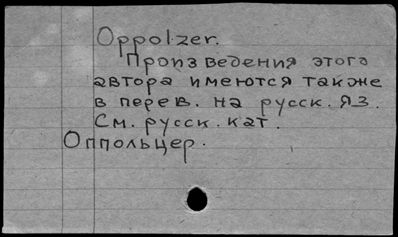 Oppolzer.
Произведения этого
автора имеются также
в перев. на русск. яз.
См. русск. кат.
Оппольцер.